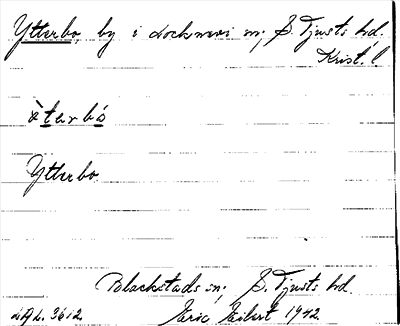 Ytterbo, by i Locknevi sn; S. Tjusts hd.
Krist. l
ỳtarbó
Ytterbo
Blackstads sn; S. Tjusts hd.
3612 Eric Eilert 1942.